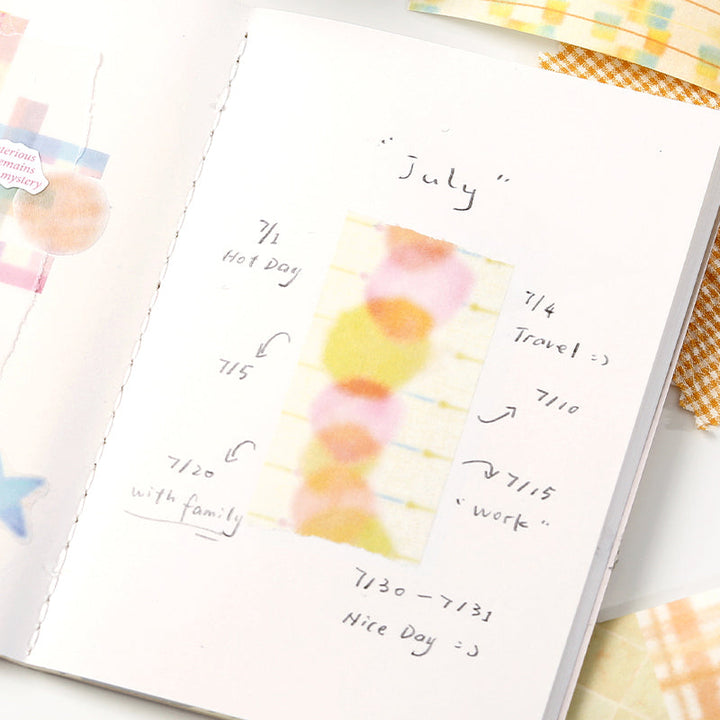 terious
emains
mystery
"July"
7/1
Hot Day
7/4
Travel :)
7/5
7/10
7/20
with family
7/15
"Work"
7/30 - 7/31
Nice Day :)